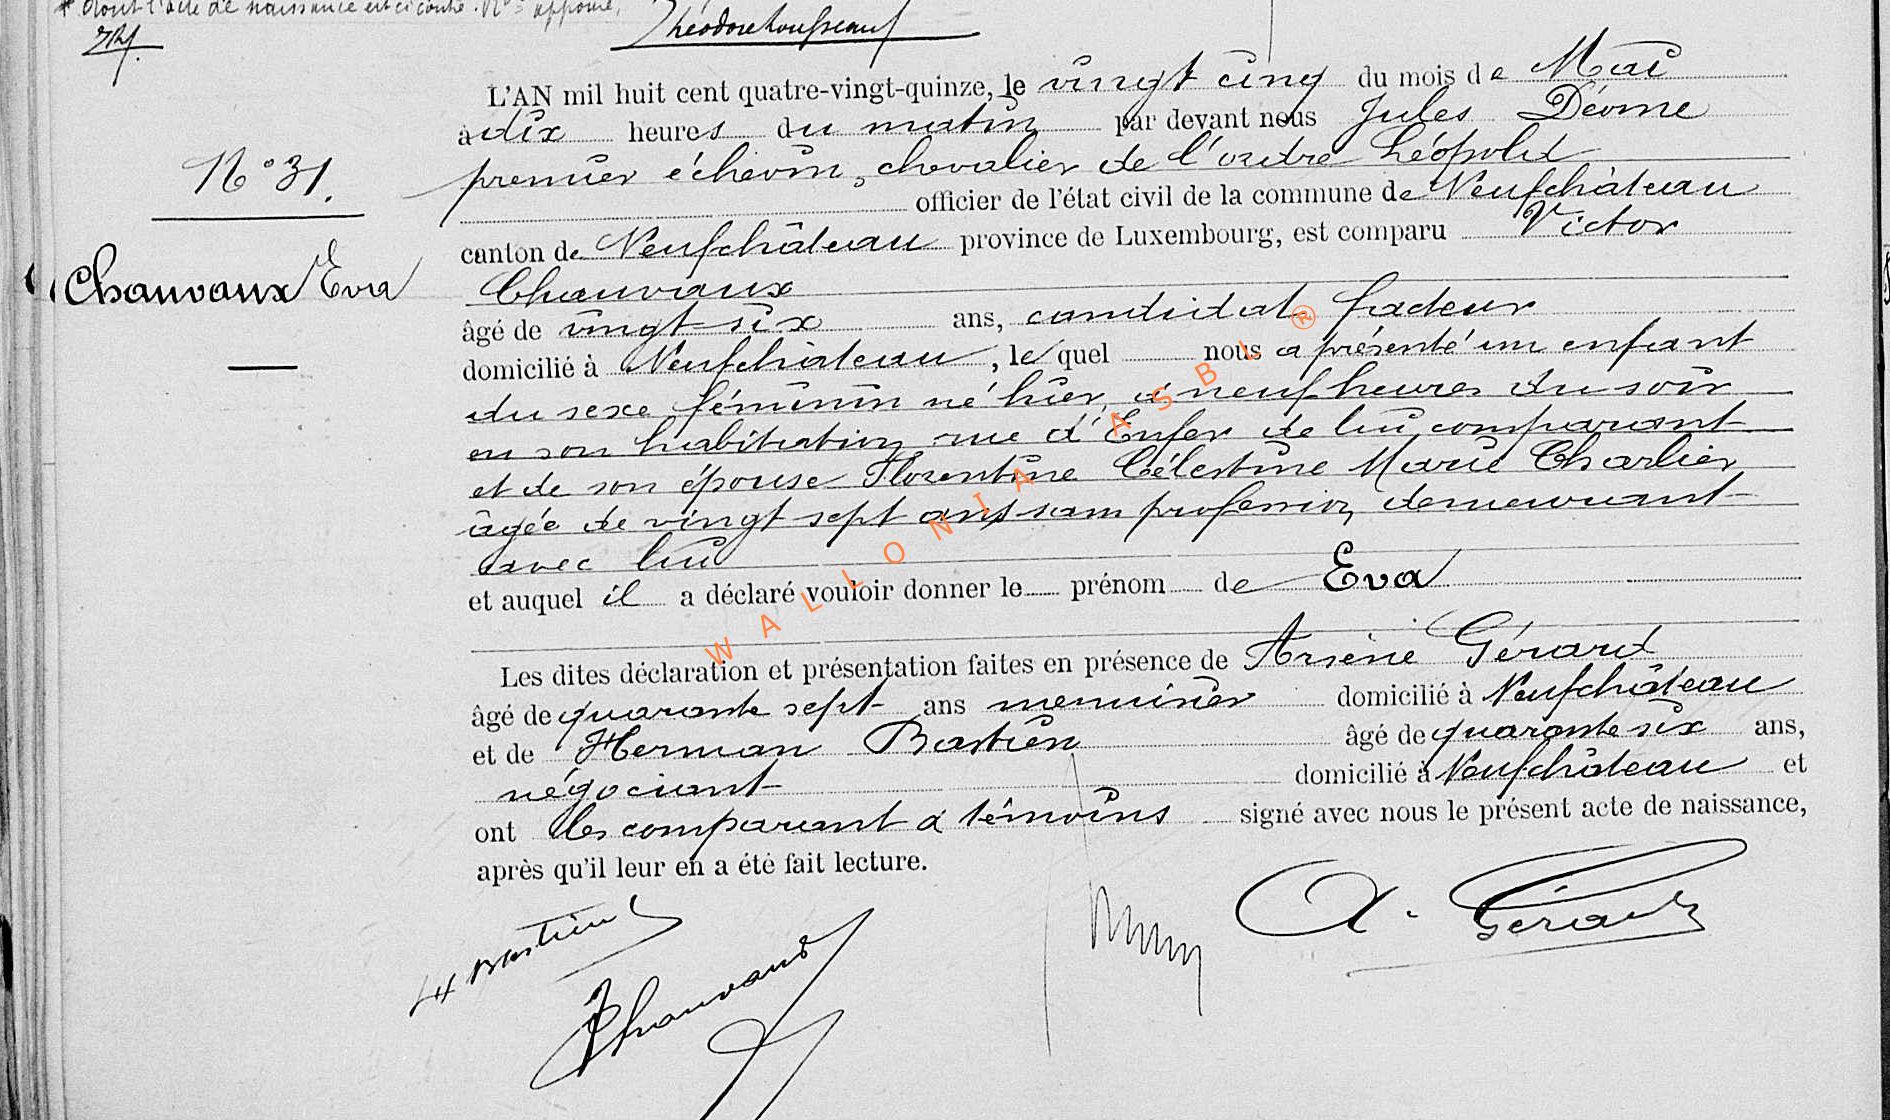 * dont l'acte de naissance est ci contre. Nos approuvé,
Théodore Rousseaux
L'AN mil huit cent quatre-vingt-quinze, le vingt cinq du mois de Mai
à dix heures du matin par devant nous Jules Déome
N° 31. premier échevin, chevalier de l'ordre Léopold
officier de l'état civil de la commune de Neufchâteau
canton de Neufchâteau province de Luxembourg, est comparu Victor
Chauvaux Eva Chauvaux
âgé de vingt six ans, candidat facteur
domicilié à Neufchâteau, lequel nous a présenté un enfant
du sexe féminin né hier, à neuf heures du soir
en son habitation rue d'Enfer de lui comparant
et de son épouse Florentine Célestine Marie Charlier
âgée de vingt sept ans sans profession, demeurant
avec lui
et auquel il a déclaré vouloir donner le prénom de Eva
Les dites déclaration et présentation faites en présence de Arsène Gérard
âgé de quarante sept ans menuisier domicilié à Neufchâteau
et de Herman Bastien âgé de quarante six ans,
négociant domicilié à Neufchâteau et
ont les comparant & témoins signé avec nous le présent acte de naissance,
après qu'il leur en a été fait lecture.
H Bastien A. Gérard
Chauvaux
WALLONIA ASBL ®